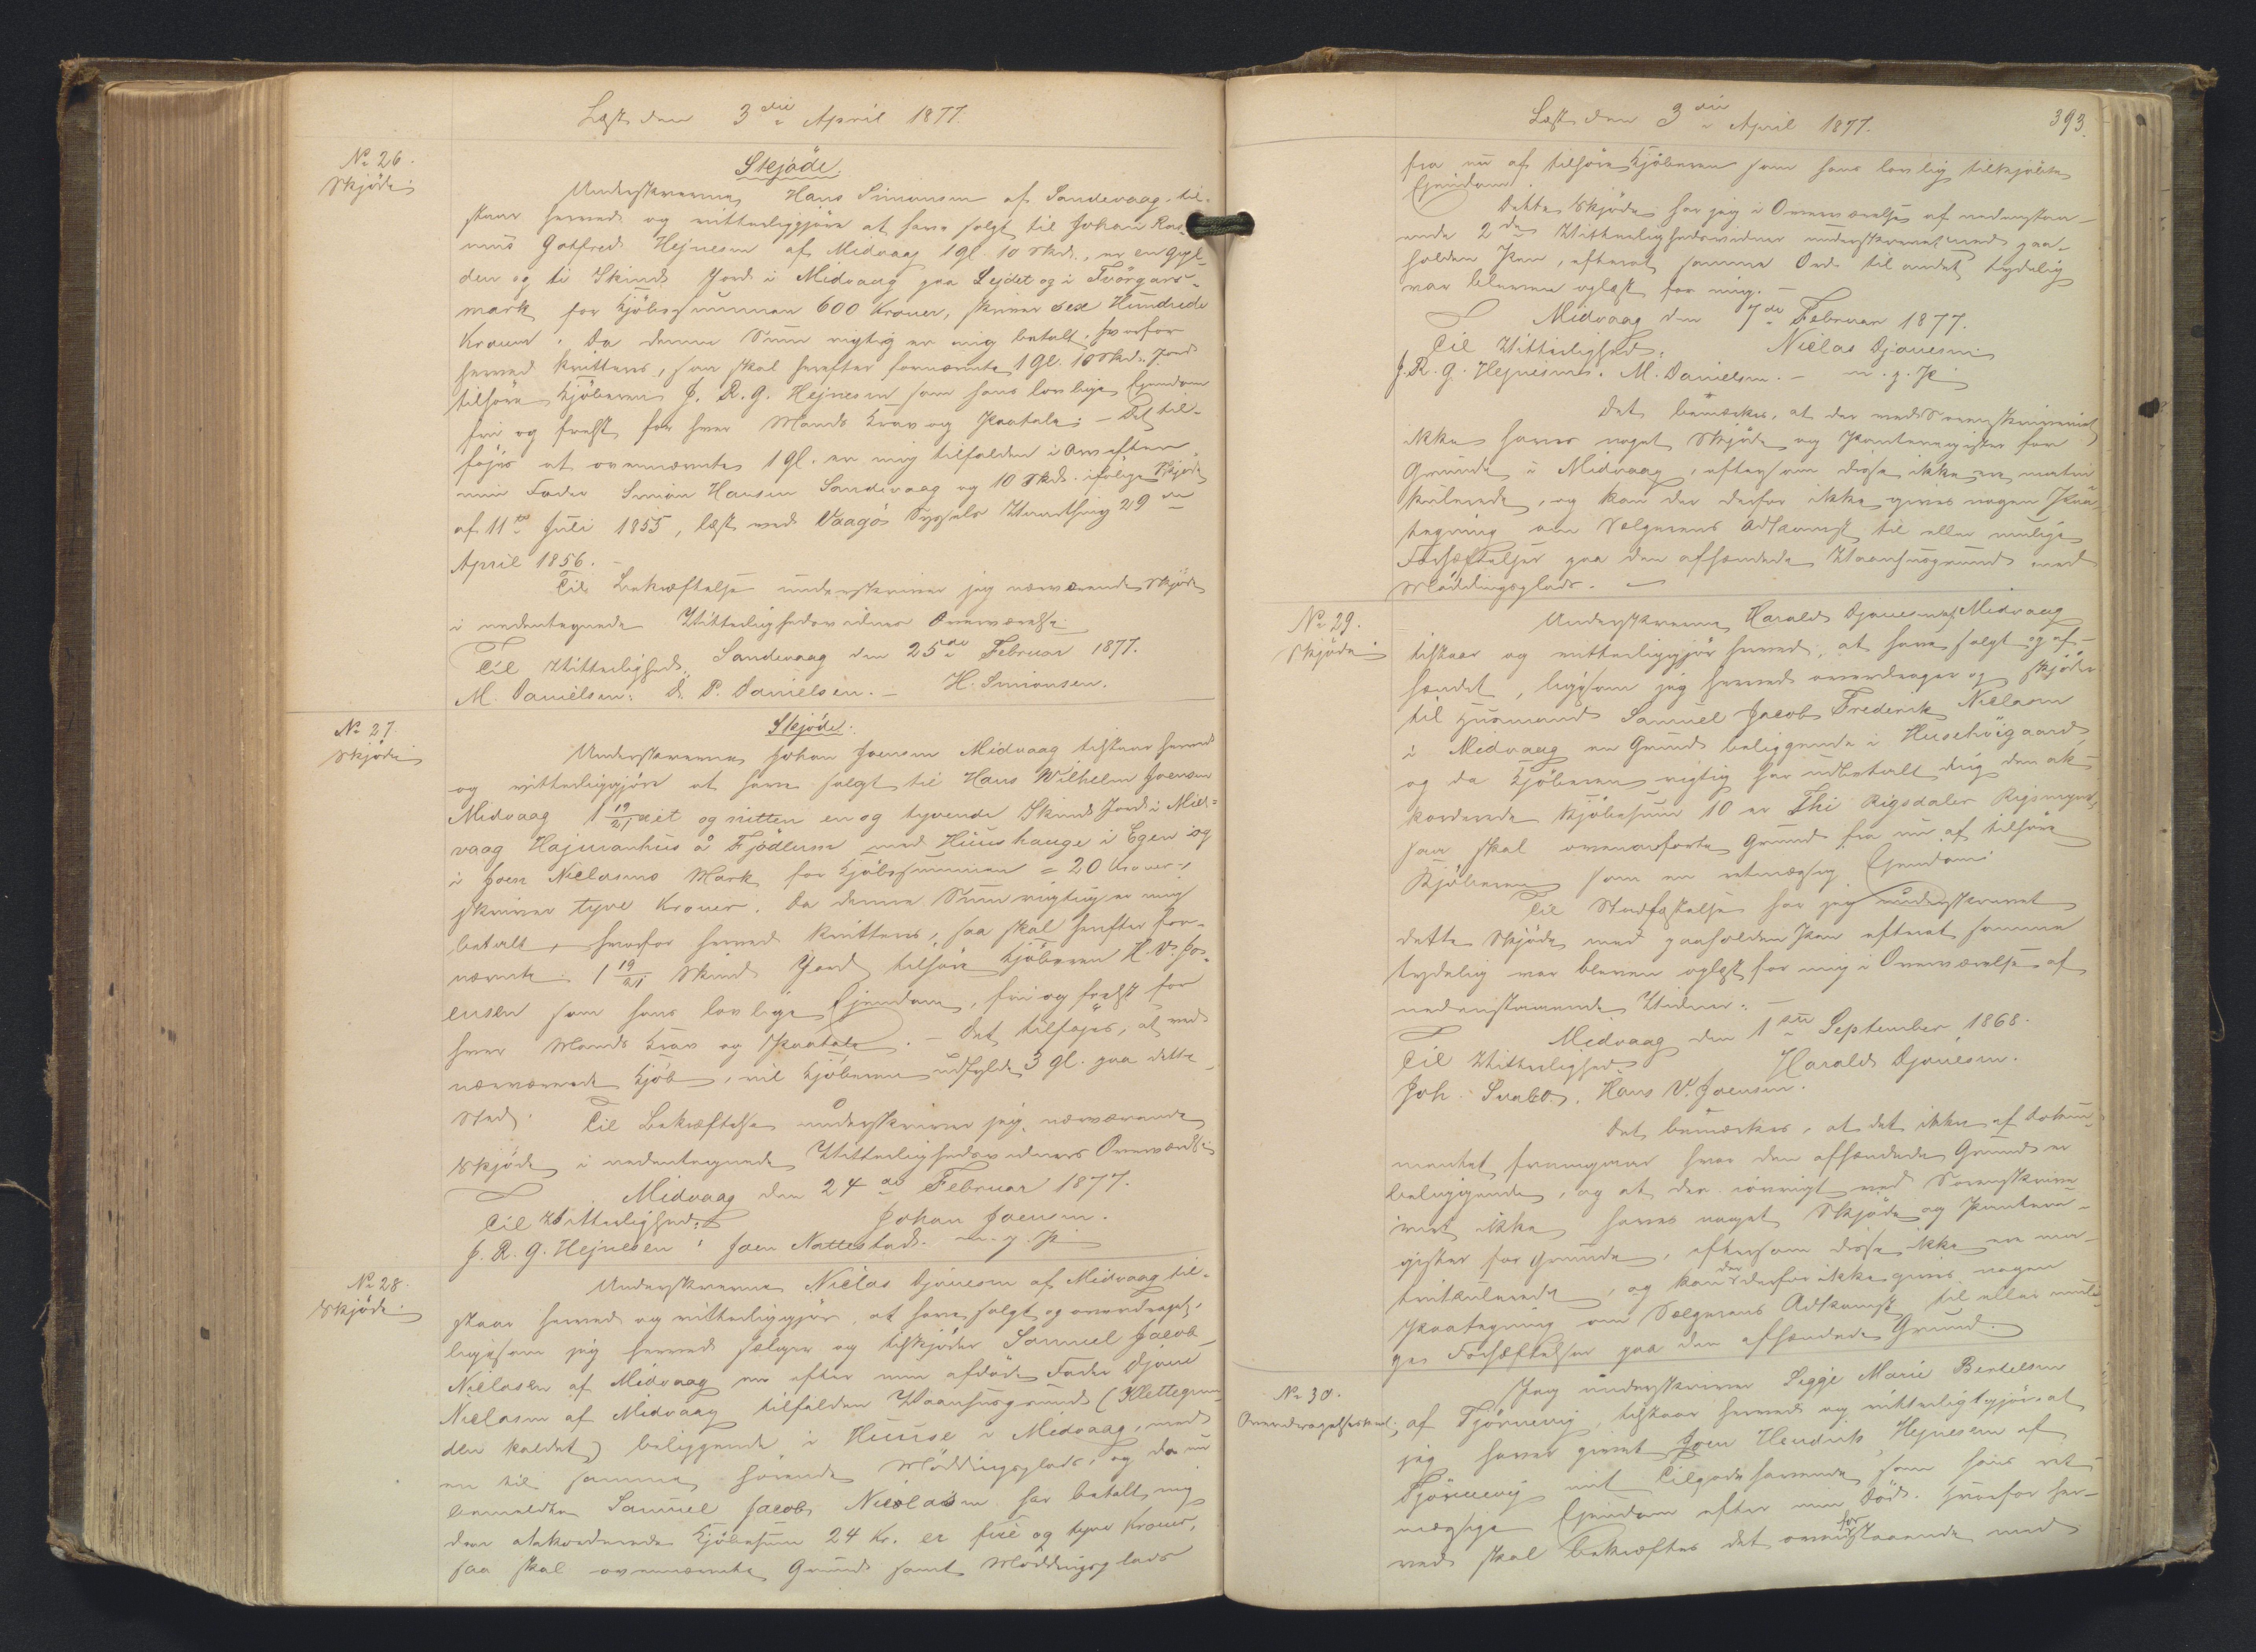 Læst den 3die April 1877.
No 26.
Skjøde
Skjøde.
Underskrevne Hans Simonsen af Sandevaag til-
staar herved og vitterliggjøre at have solgt til Johan Ras-
mus Gotfred Hejnesen af Midvaag 1 gl. 10 Skd., er en Gyl-
den og ti Skind Jord i Midvaag paa Lejdet og i Tvørgars-
mark for Kjøbesummen 600 Kroner, skriver sex Hundrede
Kroner. Da denne Sum rigtig er mig betalt, hvorfor
herved kvitteres, saa skal herefter fornævnte 1 Gl. 10 Skd. Jord
tilhøre Kjøberen J. R. G. Hejnesen som hans lovlige Ejendom
fri og frelst for hver Mands Krav og Paatale; - Det til-
føjes at ovennævnte 1 gl. er mig tilfalden i Arv efter
min Fader Simon Hansen Sandevaag og 10 Skd. ifølge Skjøde
af 11te Juli 1855, læst ved Vaagø Syssels Vaarthing 29de
April 1856.
Til Bekræftelse underskriver jeg nærværende Skjøde
i nedentegnede Vitterlighedsvidners Overværelse.
Sandevaag den 25de Februar 1877.
Til Vitterlighed:
M. Danielsen. D. P. Danielsen. - H. Simonsen.
No 27.
Skjøde
Skjøde.
Underskrevne Johan Joensen Midvaag tilstaar herved
og vitterliggjøre at have solgt til Hans Wilhelm Joensen
Midvaag 1 19/21 eet og nitten en og tyvende Skind Jord i Mid-
vaag Hajmanhus å Fjødlum med Huushauge i Egen og
i Joen Niclasens Mark for Kjøbesummen = 20 Kroner,
skriver tyve Kroner. Da denne Sum rigtig er mig
betalt, hvorfor herved kvitteres, saa skal herefter for-
nævnte 1 19/21 Skind Jord tilhøre Kjøberen H. V. Jo-
ensen som hans lovlige Ejendom, fri og frelst for
hver Mands Krav og Paatale. - Det tilføjes, at ved
nærværende Kjøb, vil Kjøberen udfylde 3 gl. paa dette
Sted.
Til Bekræftelse underskriver jeg nærværende
Skjøde i nedentegnede Vitterlighedsvidners Overværelse
Midvaag den 24de Februar 1877.
Til Vitterlighed: Johan Joensen.
J. R. G. Hejnesen. Joen Nattestad. m. p. P.
No 28.
Skjøde.
Underskrevne Niclas Djonesen af Midvaag til-
staar herved og vitterliggjør, at have solgt og overdraget,
ligesom jeg herved sælger og tilskjøder Samuel Jacob
Niclasen af Midvaag en efter min afdøde Fader Djone
Niclasen af Midvaag tilfalden Vaanhusgrund (Klettegrun-
den kaldet) beliggende i Huuse i Midvaag, med
en til samme hørende Møddingsplads, og da nu
bemeldte Samuel Jacob Niclasen har betalt mig
den akkorderede Kjøbesum 24 Kr. er fire og tyve Kroner,
saa skal ovennævnte Grund samt Møddingsplads
Læst den 3die April 1877.
393.
fra nu af tilhøre Kjøberen som hans lovlig tilkjøbte
Ejendom.
Dette Skjøde har jeg i Overværelse af nedenstaa-
ende 2de Vitterlighedsvidner underskrevet med paa-
holden Pen, efterat samme Ord til andet tydelig
var bleven oplæst for mig. -
Midvaag den 7de Februar 1877.
Til Vitterlighed: Niclas Djonesen
J. R. G. Hejnesen. M. Danielsen. - m. p. P.
Det bemærkes, at der ved Sorenskriveriet
ikke haves noget Skjøde og Panteregister for
Grunde i Midvaag, eftersom disse ikke ere matri-
kulerede, og kan der derfor ikke gives nogen Paa-
tegning om Sælgerens Adkomst til eller mulige
Forhæftelser paa den afhændede Vaanhusgrund med
Møddingsplads.
No 29.
Skjøde
Underskrevne Harald Djonesen af Midvaag
tilstaar og vitterliggjør herved, at have solgt og af-
hændet, ligesom jeg herved overdrager og skjøder
til Husmand Samuel Jacob Frederik Niclasen
i Midvaag en Grund beliggende i Husehøigaard
og da Kjøberen rigtig har udbetalt mig den ak-
korderede Kjøbesum 10 er Thi Rigsdaler Rigsmynt,
saa skal ovenanførte Grund fra nu af tilhøre
Kjøberen som en retmæssig Ejendom.
Til Stadfæstelse har jeg underskrevet
dette Skjøde med paaholden Pen efterat samme
tydelig var bleven oplæst for mig i Overværelse af
nedenstaaende Vidner. -
Midvaag den 1ste September 1868.
Til Vitterlighed: Harald Djonesen.
Joh. Svabo. Hans V. Joensen.
Det bemærkes, at det ikke af Doku-
mentet fremgaaer hvor den afhændede Grund er
beliggende, og at der iøvrigt ved Sorenskrive-
riet ikke haves noget Skjøde og Pantere-
gister for Grunde, eftersom disse ikke ere ma-
trikulerede, og kan der derfor ikke gives nogen
Paategning om Sælgerens Adkomst til eller muli-
ge Forhæftelser paa den afhændede Grund.
No 30.
Overdragelsesdok.
Jeg underskrevne Sigge Marie Bertelsen
af Tjørnevig, tilstaar herved og vitterliggjøre at
jeg haver givet Joen Hendrik Hejnesen af
Tjørnevig mit Tilgodehavende som hans ret-
mæssige Ejendom efter min Død. Hvorfor her-
ved skal bekræftes det ovenforstaaende med